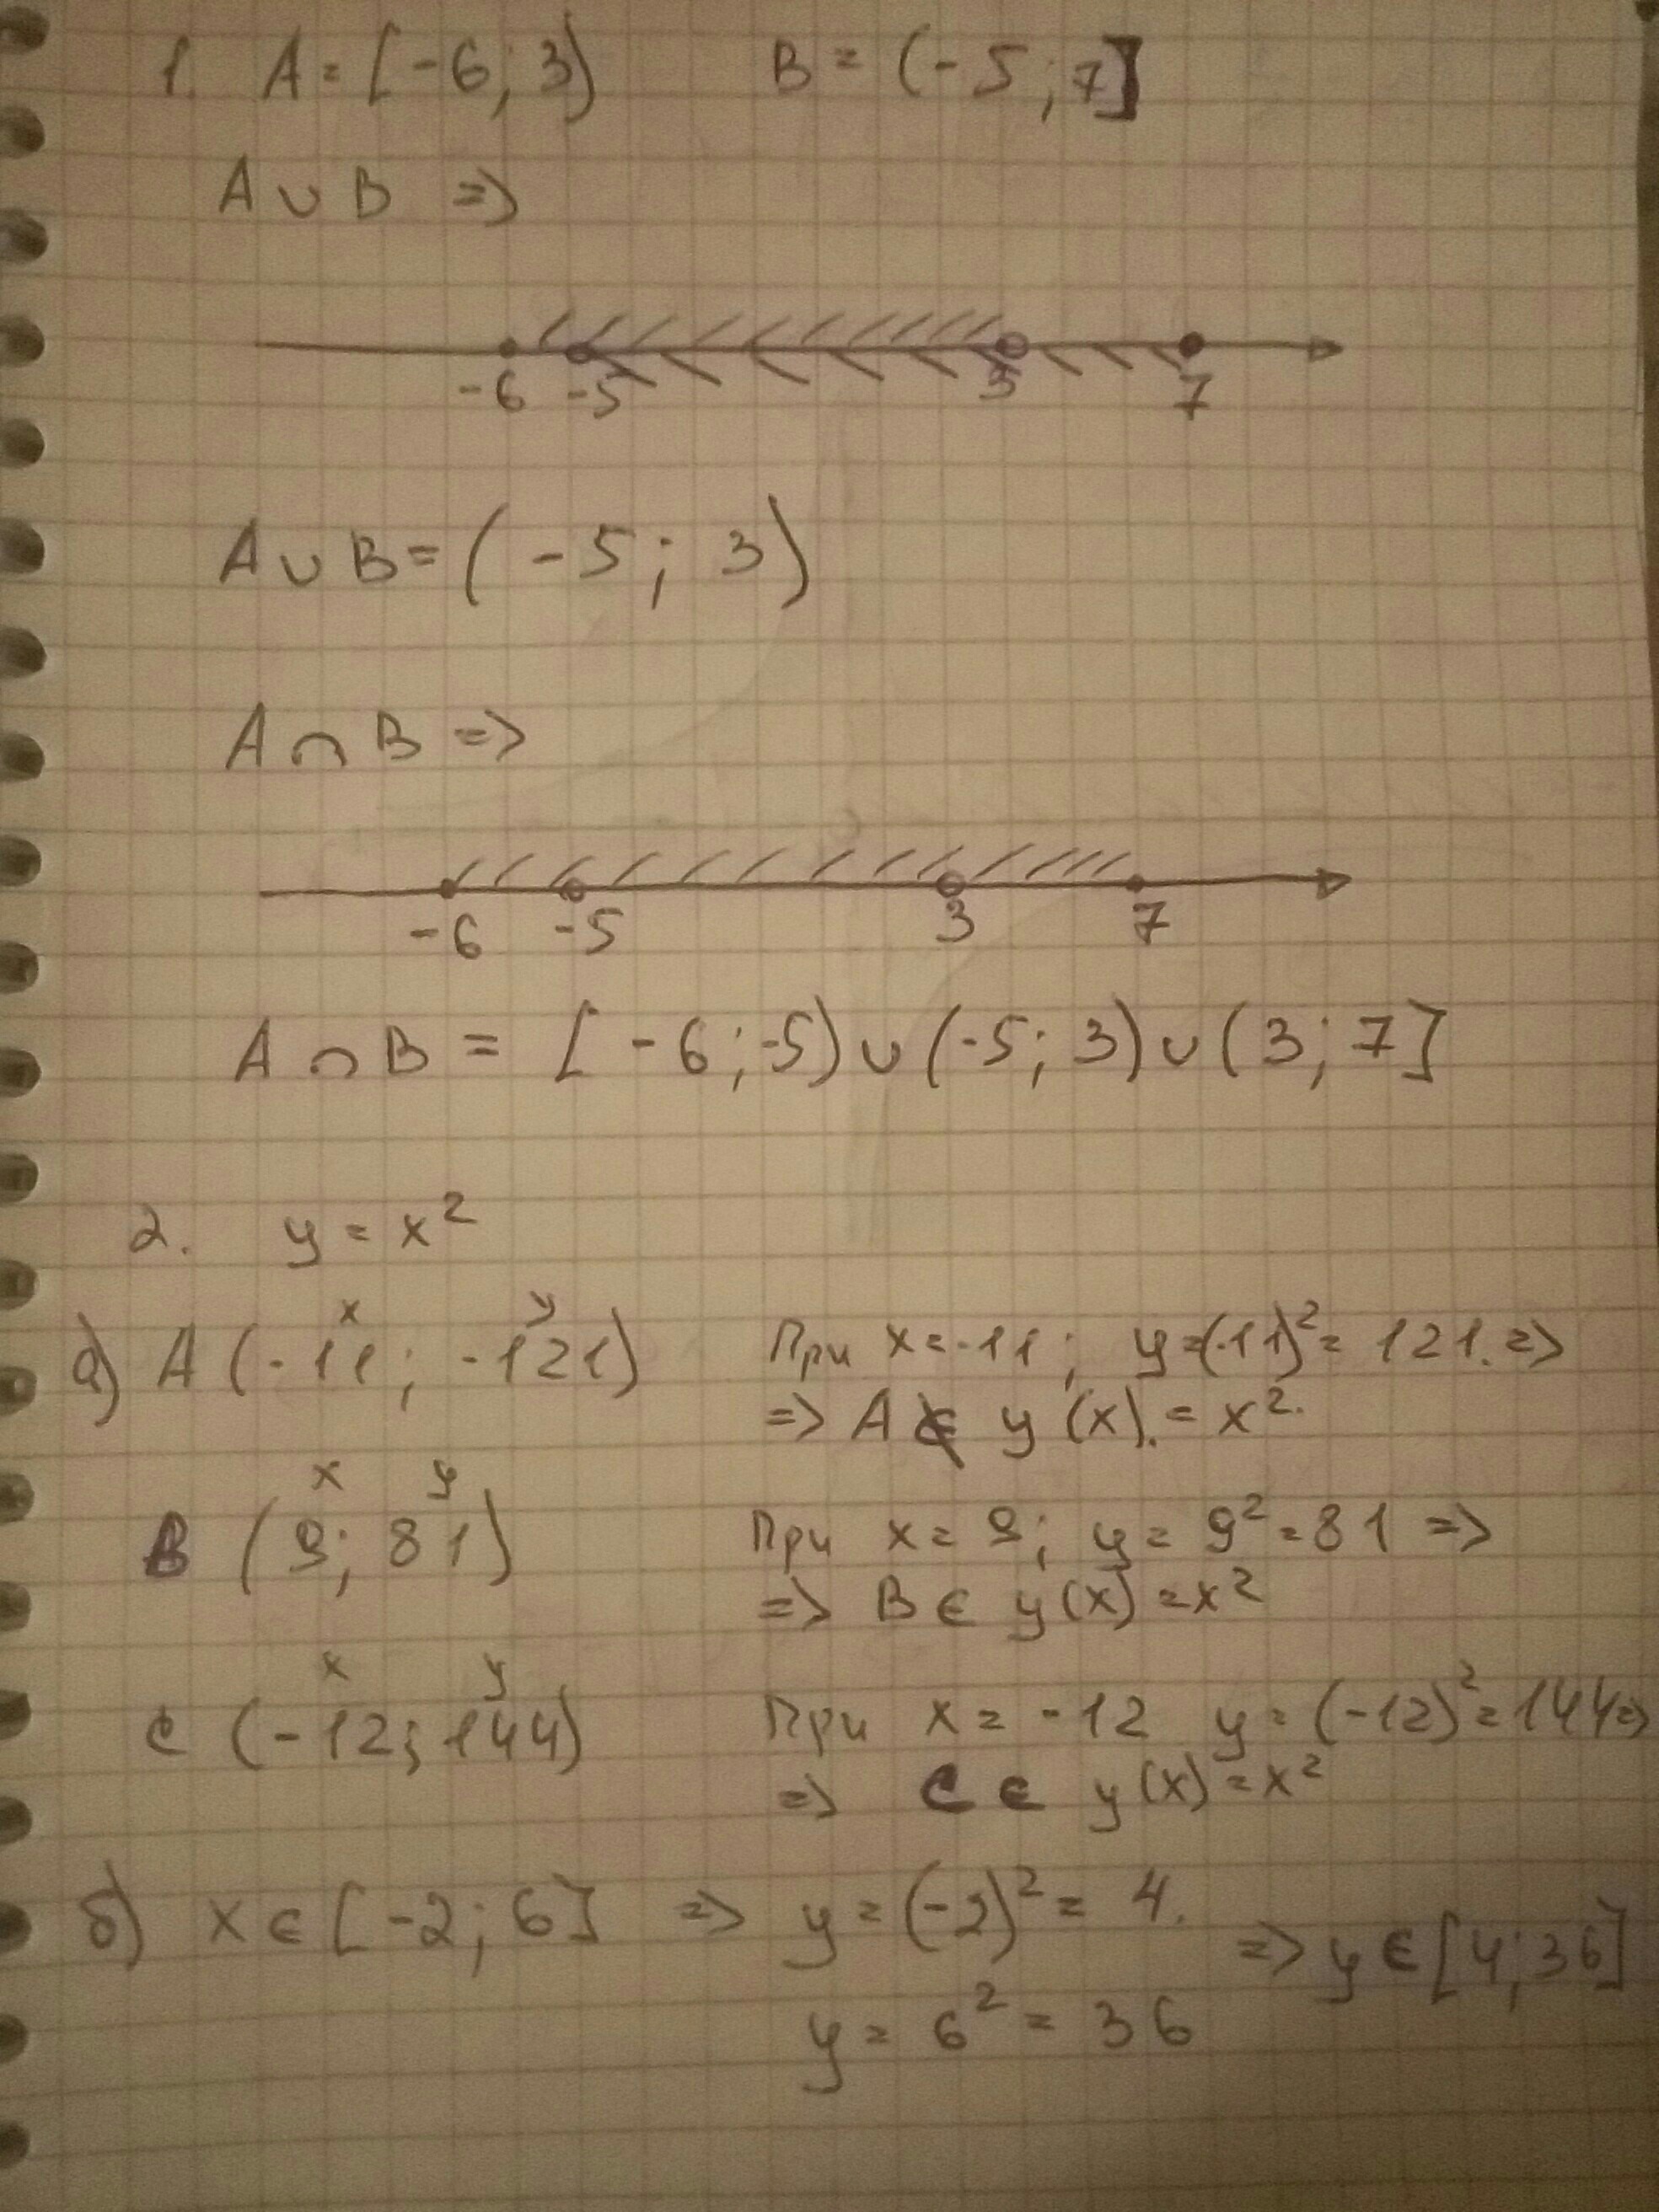 1. A = [-6; 3) B = (-5; 7]
A ∪ B =>
-6 -5 3 7
A ∪ B = (-5; 3)
A ∩ B =>
-6 -5 3 7
A ∩ B = [-6; -5) ∪ (-5; 3) ∪ (3; 7]
2. y = x²
x y
а) A (-11; -121) При x = -11; y = (-11)² = 121. =>
=> A ∉ y(x). = x².
x y
B (9; 81) При x = 9; y = 9² = 81 =>
=> B ∈ y(x) = x²
x y
C (-12; 144) При x = -12 y = (-12)² = 144 =>
=> C ∈ y(x) = x²
б) x ∈ [-2; 6] => y = (-2)² = 4. => y ∈ [4; 36]
y = 6² = 36